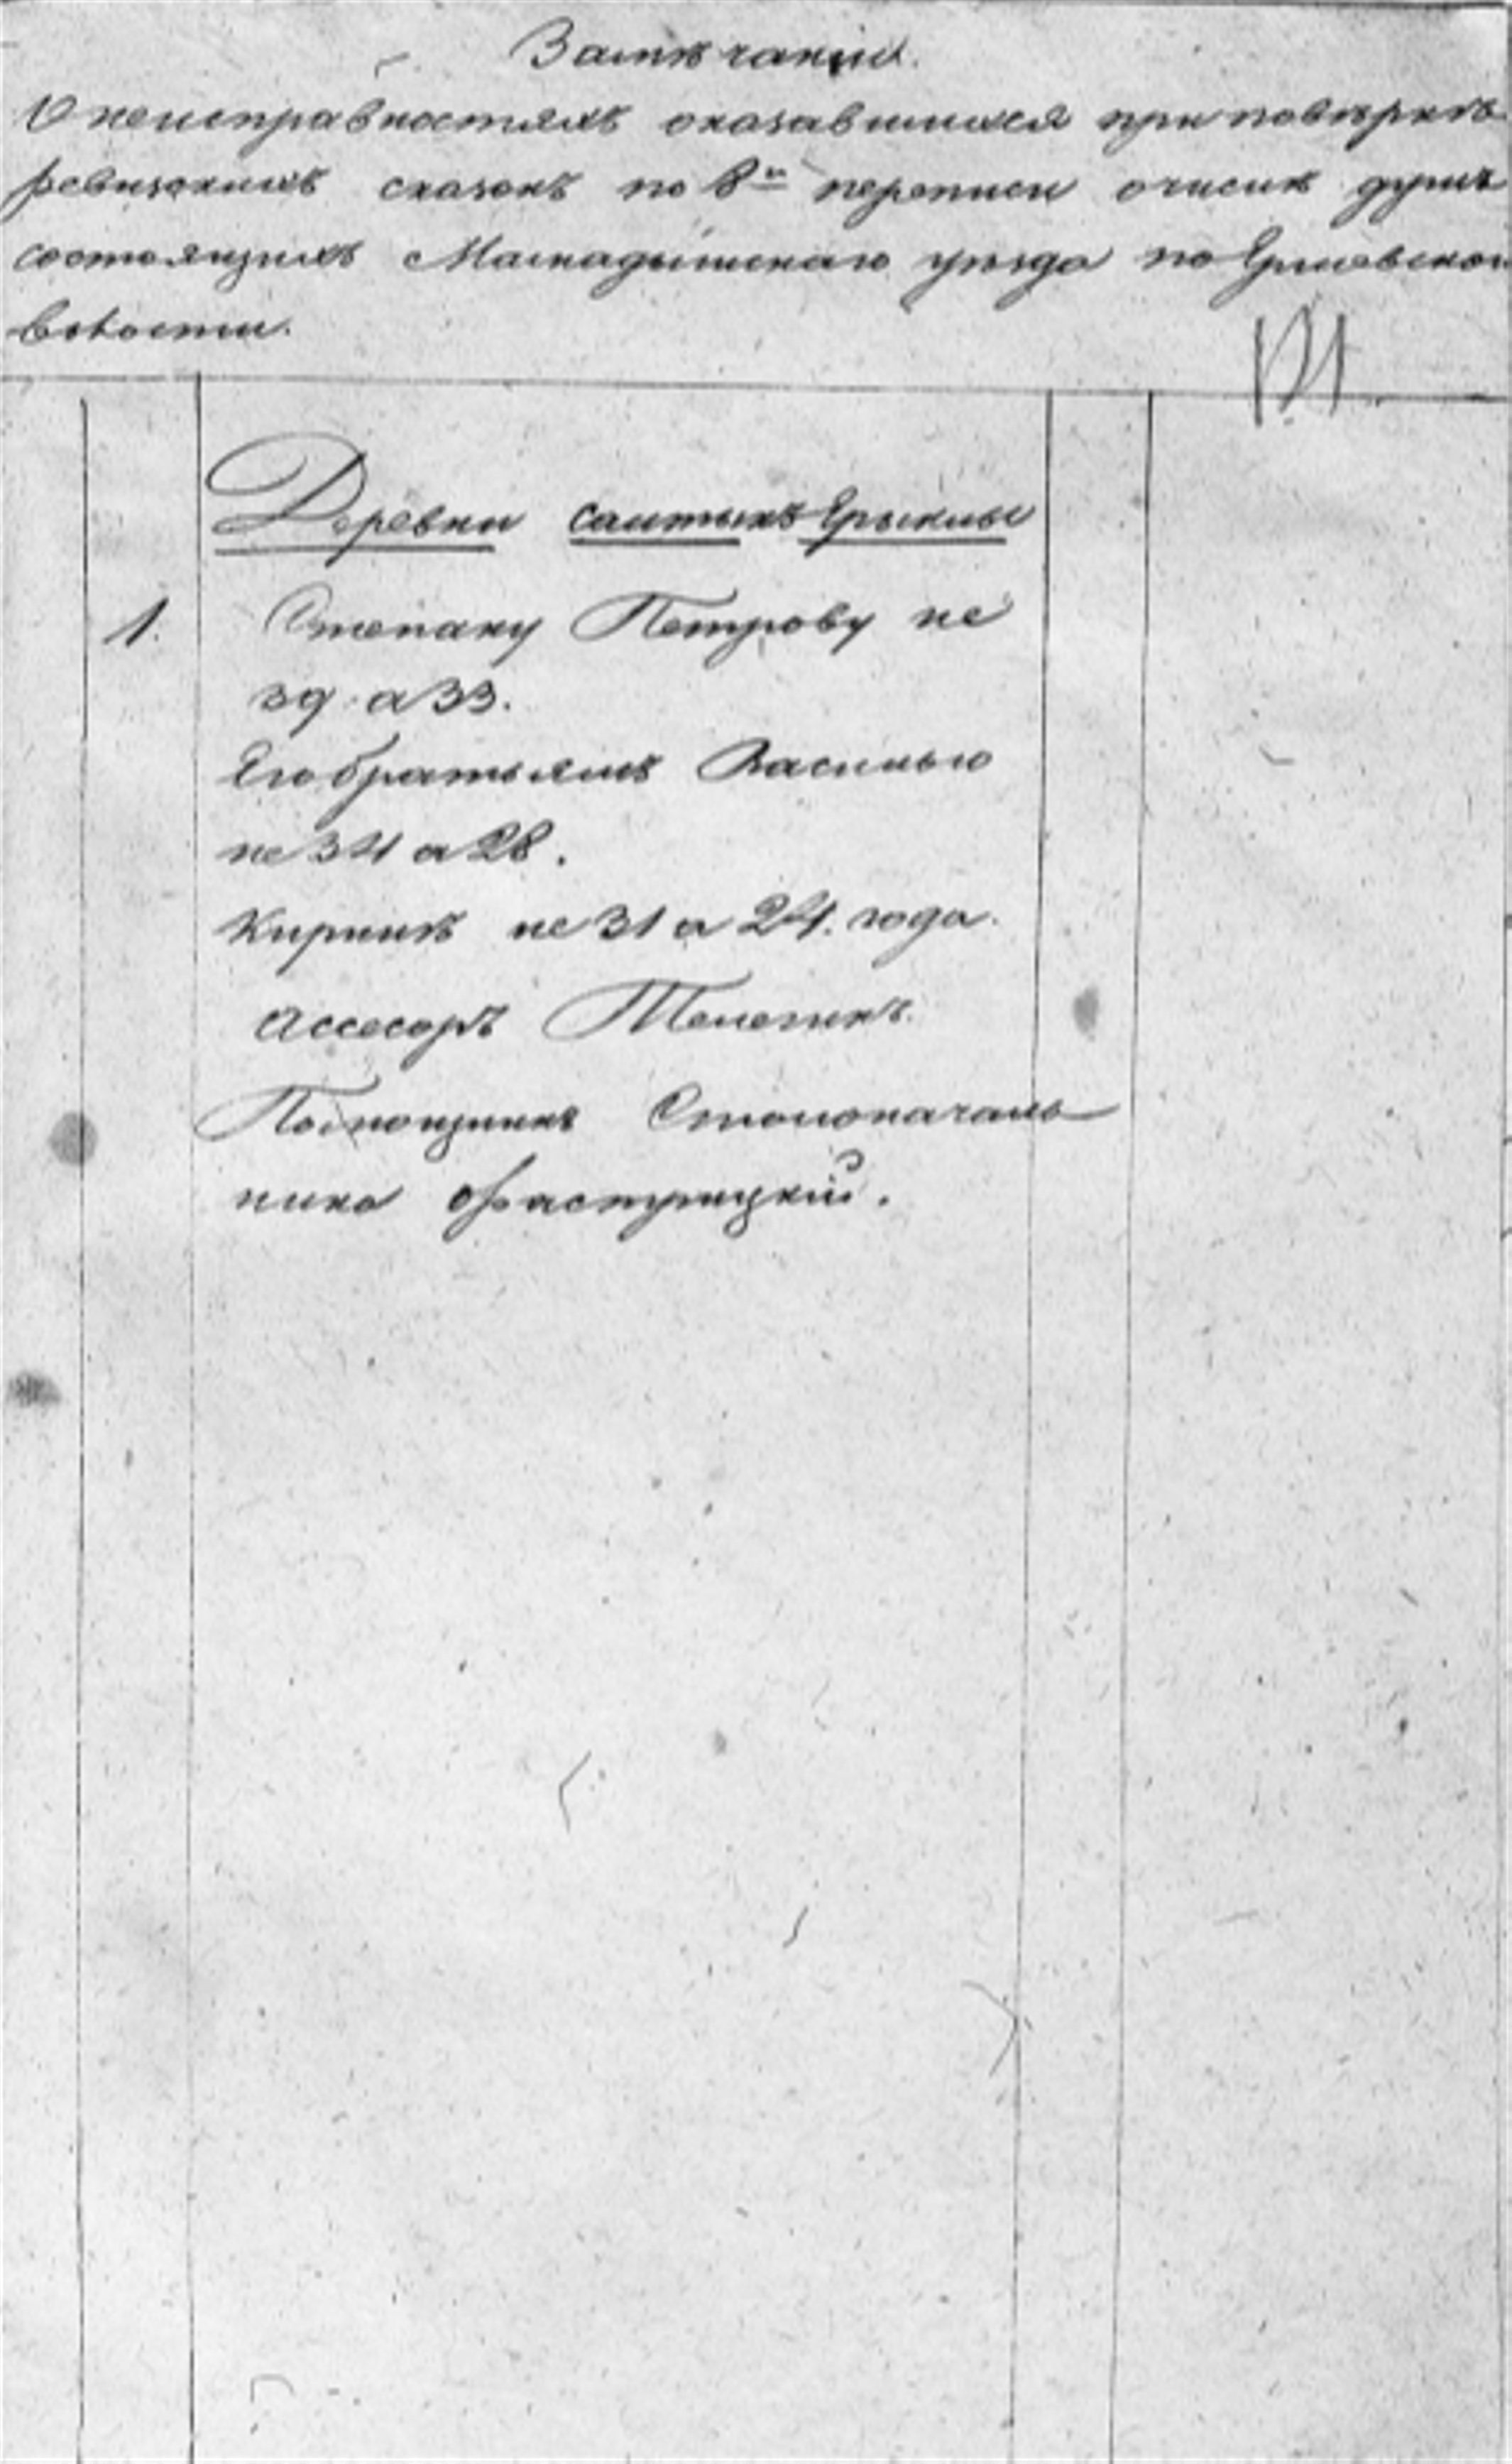 Замѣчаніи.
О неисправностяхъ оказавшихся при повѣркѣ
ревизскихъ сказокъ по 8й переписи о числѣ душъ
состоящихъ Мамадышскаго уѣзда по
волости.
Деревни
1. Степану Петрову не
39 а 33.
Его братьямъ Василью
не 34 а 28.
Кирилѣ не 31 а 24. года.
Ассесоръ
Помощникъ Столоначаль
ника